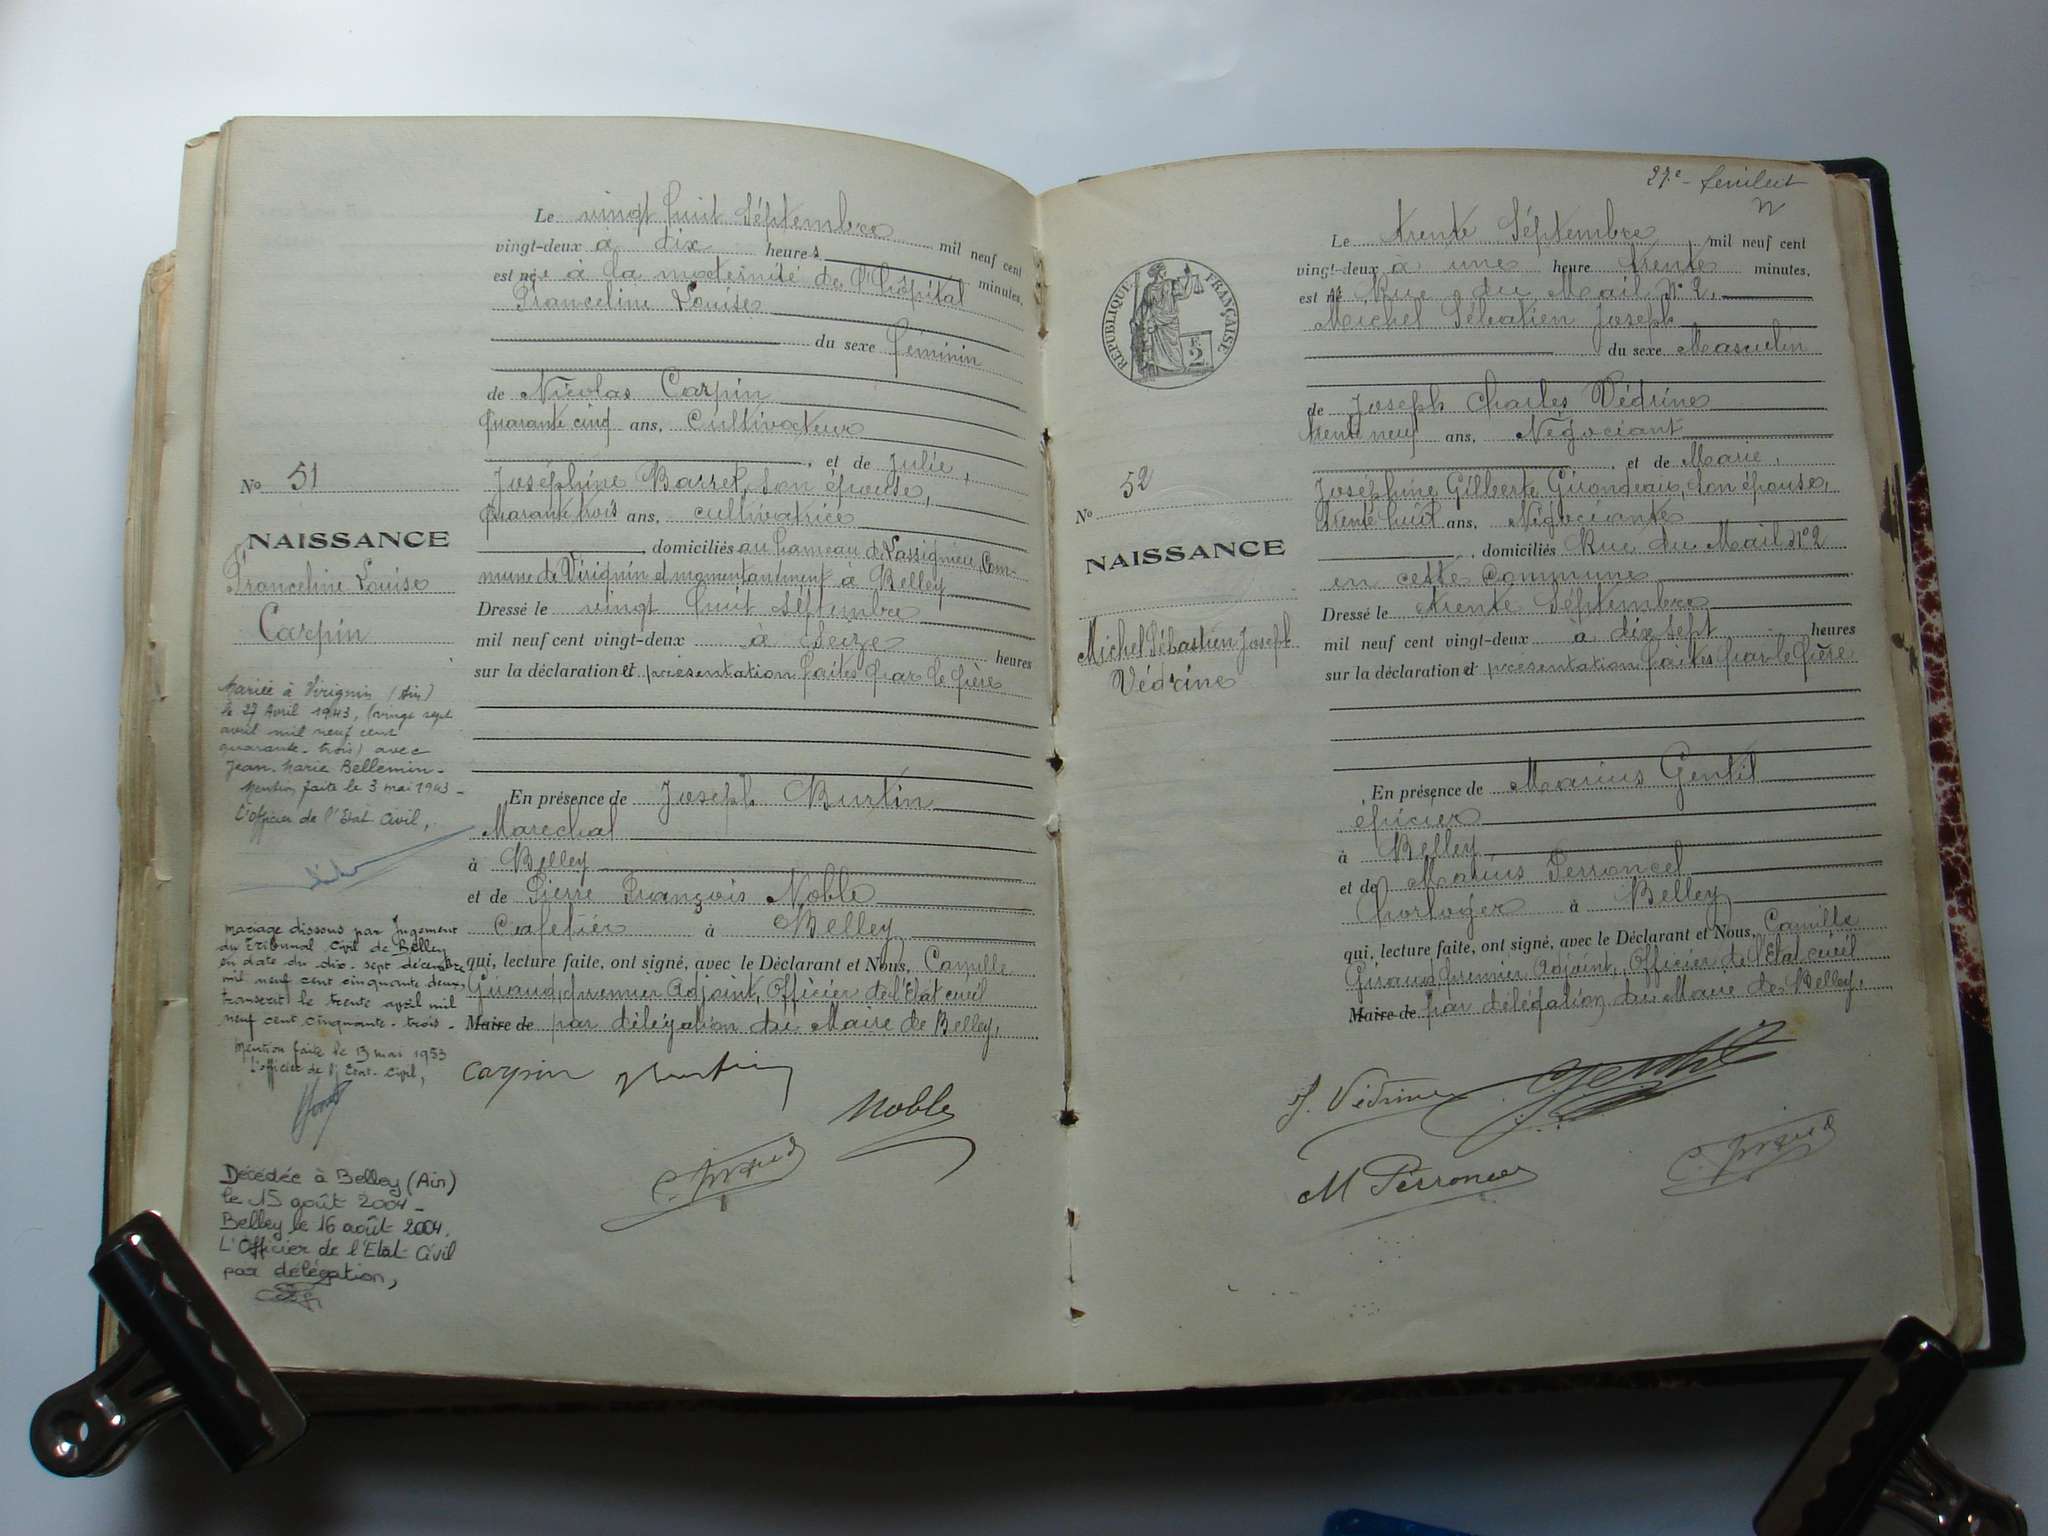 Le vingt huit Séptembre mil neuf cent
vingt-deux à dix heures minutes,
est née à la maternité de l'hôpital
Franceline Louise
du sexe feminin
de Nicolas Carpin
quarante cinq ans, cultivateur
, et de Julie,
Joséphine Barret, son épouse,
quarante trois ans, cultivatrice
, domiciliés au hameau de Lassignieu, Com-
mune de Virignin et momentanément à Belley
Dressé le vingt huit Séptembre
mil neuf cent vingt-deux à seize heures
sur la déclaration et présentation faites par le père
En présence de Joseph Burtin
Marechal
à Belley
et de Pierre François Noble
Cafetier à Belley
qui, lecture faite, ont signé, avec le Déclarant et Nous, Camille
Giraud, premier Adjoint, Officier de l'Etat civil
Maire de par délégation du Maire de Belley,
Carpin
Noble
C. Giraud
No 51
NAISSANCE
Franceline Louise
Carpin
Mariée à Virignin (Ain)
le 27 Avril 1943, (vingt sept
avril mil neuf cent
quarante-trois) avec
Jean-Marie Bellemin-
Mention faite le 3 mai 1943-
L'officier de l'Etat Civil,
mariage dissous par Jugement
du Tribunal Civil de Belley
en date du dix-sept décembre
mil neuf cent cinquante deux,
transcrit le trente avril mil
neuf cent cinquante-trois-
Mention faite le 13 mai 1953
L'officier de l'Etat-Civil,
Décédée à Belley (Ain)
le 15 août 2004-
Belley le 16 août 2004.
L'Officier de l'Etat-Civil
par délégation,
27e feuillet
RÉPUBLIQUE FRANÇAISE
F.
2
Le trente Séptembre mil neuf cent
vingt-deux à une heure trente minutes,
est né Rue du Mail N° 2,
Michel Sébatien Joseph
du sexe Masculin
de Joseph Charles Védrine
trente neuf ans, Négociant
, et de Marie,
Joséphine Gilberte Girondeau, son épouse,
trente huit ans, Négociante
, domiciliés Rue du Mail N°2
en cette commune
Dressé le trente Séptembre
mil neuf cent vingt-deux à dix sept heures
sur la déclaration et présentation faites par le père
En présence de Marius Gentil
épicier
à Belley
et de Marius Perroncel
horloger à Belley
qui, lecture faite, ont signé, avec le Déclarant et Nous, Camille
Giraud, premier Adjoint, Officier de l'Etat civil
Maire de par délégation du Maire de Belley,
J. Védrine
Gentil
M Perroncel
C. Giraud
No 52
NAISSANCE
Michel Sébastien Joseph
Védrine